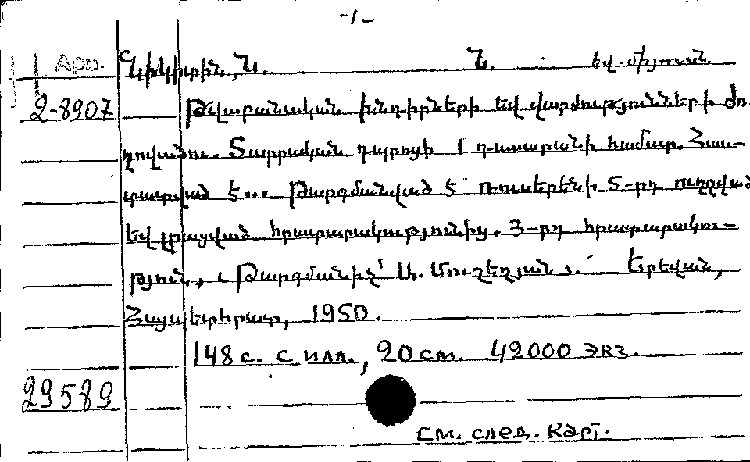 -1-
Арм. Նիկիտին, Ն. Ն. եվ միյուսն
2-8907 Թվաբանական խնդիրների եվ վարժությունների ժո-
ղովածու. Տարրական դպրոցի 1 դասարանի համար. Հաս-
տատված է... Թարգմանված է ռուսերենի 5-րդ ուղղված
եվ լրացված հրատարակությունից. 3-րդ հրատարակու-
թյուն. Թարգմանիչ՝ Ա. Մուշեղյան. Երեվան,
Հայպետհրատ, 1950.
148 с. с илл., 20 см. 42000 экз.
29589
см. след. карт.